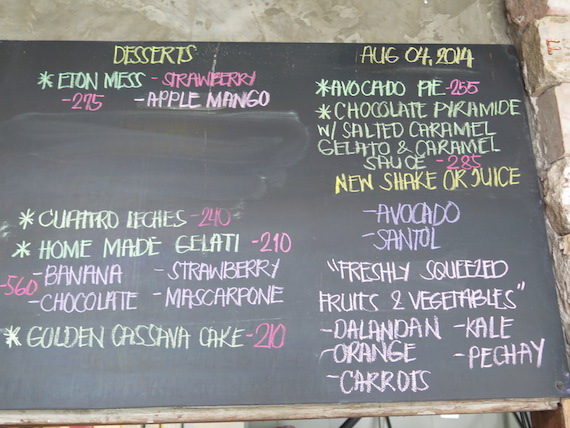 DESSERTS
* ETON MESS - STRAWBERRY
-275 - APPLE MANGO
* CUATTRO LECHES - 240
* HOME MADE GELATI - 210
-560 - BANANA - STRAWBERRY
- CHOCOLATE - MASCARPONE
* GOLDEN CASSAVA CAKE - 210
AUG 04, 2014
* AVOCADO PIE - 255
* CHOCOLATE PYRAMIDE
W/ SALTED CARAMEL
GELATO & CARAMEL
SAUCE - 285
NEW SHAKE OR JUICE
- AVOCADO
- SANTOL
"FRESHLY SQUEEZED
FRUITS & VEGETABLES"
- DALANDAN - KALE
- ORANGE - PECHAY
- CARROTS